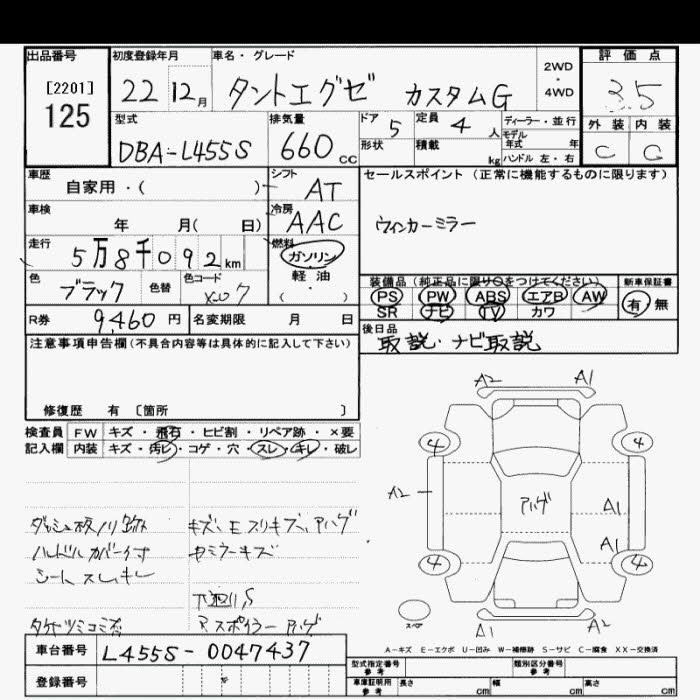 出品番号 初度登録年月 車名・グレード 2WD・4WD 評価点
[2201] 125 22 12月 タントエグゼ カスタムG 3.5
型式 排気量 ドア 定員 ディーラー・並行 外装 内装
DBA-L455S 660cc 5 4人 モデル年式 年 C C
形状 積載 kg ハンドル 左・右
車歴 自家用・( ) シフト AT セールスポイント (正常に機能するものに限ります)
車検 年 月( 日) 冷房 AAC ウィンカーミラー
走行 5万8千092km 燃料 ガソリン
軽油 ・( )
装備品 (純正品に限り○をつけてください) 新車保証書
色 ブラック 色替 色コード X07 PS PW ABS エアB AW 有 無
SR ナビ TV カワ
R券 9,460円 名変期限 月 日 後日品
取説・ナビ取説
注意事項申告欄(不具合内容等は具体的に記入して下さい)
修復歴 有 〔箇所 〕
検査員 FW キズ・飛石・ヒビ割・リペア跡・×要
記入欄 内装 キズ・汚レ・コゲ・穴・スレ・キレ・破レ
A2 A1
4 4
A2 ハゲ A1
A1
4 4
スペア
A1 A2
ハンドルカバー付
シートスレキレ
キズ、E スリキズ、ハゲ
下廻りS
Rスポイラーハゲ
A-キズ E-エクボ U-凹み W-補修跡 S-サビ C-腐食 XX-交換済
車台番号 L455S-0047437
登録番号
型式指定番号 参考 類別区分番号 参考
車庫証明用 参考 長さ cm 幅 cm 高さ cm